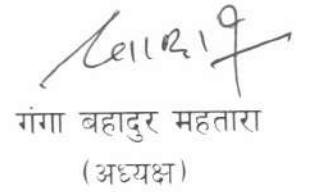 गंगा बहादुर महतारा
(अध्यक्ष)